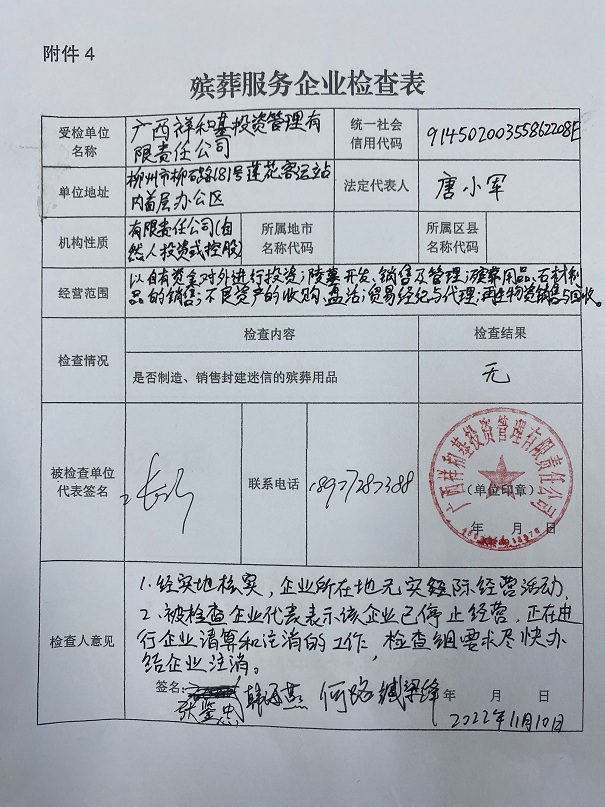 附件4
殡葬服务企业检查表
受检单位
名称
广西祥和基投资管理有
限责任公司
统一社会
信用代码
91450200355862208E
单位地址
柳州市柳石路181号莲花客运站
内首层办公区
法定代表人
唐小军
机构性质
有限责任公司(自
然人投资或控股)
所属地市
名称代码
所属区县
名称代码
经营范围
以自有资金对外进行投资;陵墓开发、销售及管理;殡葬用品、石材制
品的销售;不良资产的收购、盘活;贸易经纪与代理;再生物资销售与回收。
检查情况
检查内容
检查结果
是否制造、销售封建迷信的殡葬用品
无
被检查单位
代表签名
联系电话
18977283388
广西祥和基投资管理有限责任公司
(单位印章)
年 月 日
检查人意见
1.经实地核实,企业所在地无实际经营活动,
2.被检查企业代表表示该企业已停止经营,正在由
行企业清算和注消的工作,检查组要求尽快办
结企业注消。
签名:
何路
梁绛
年 月 日
张鉴忠
2022年11月10日